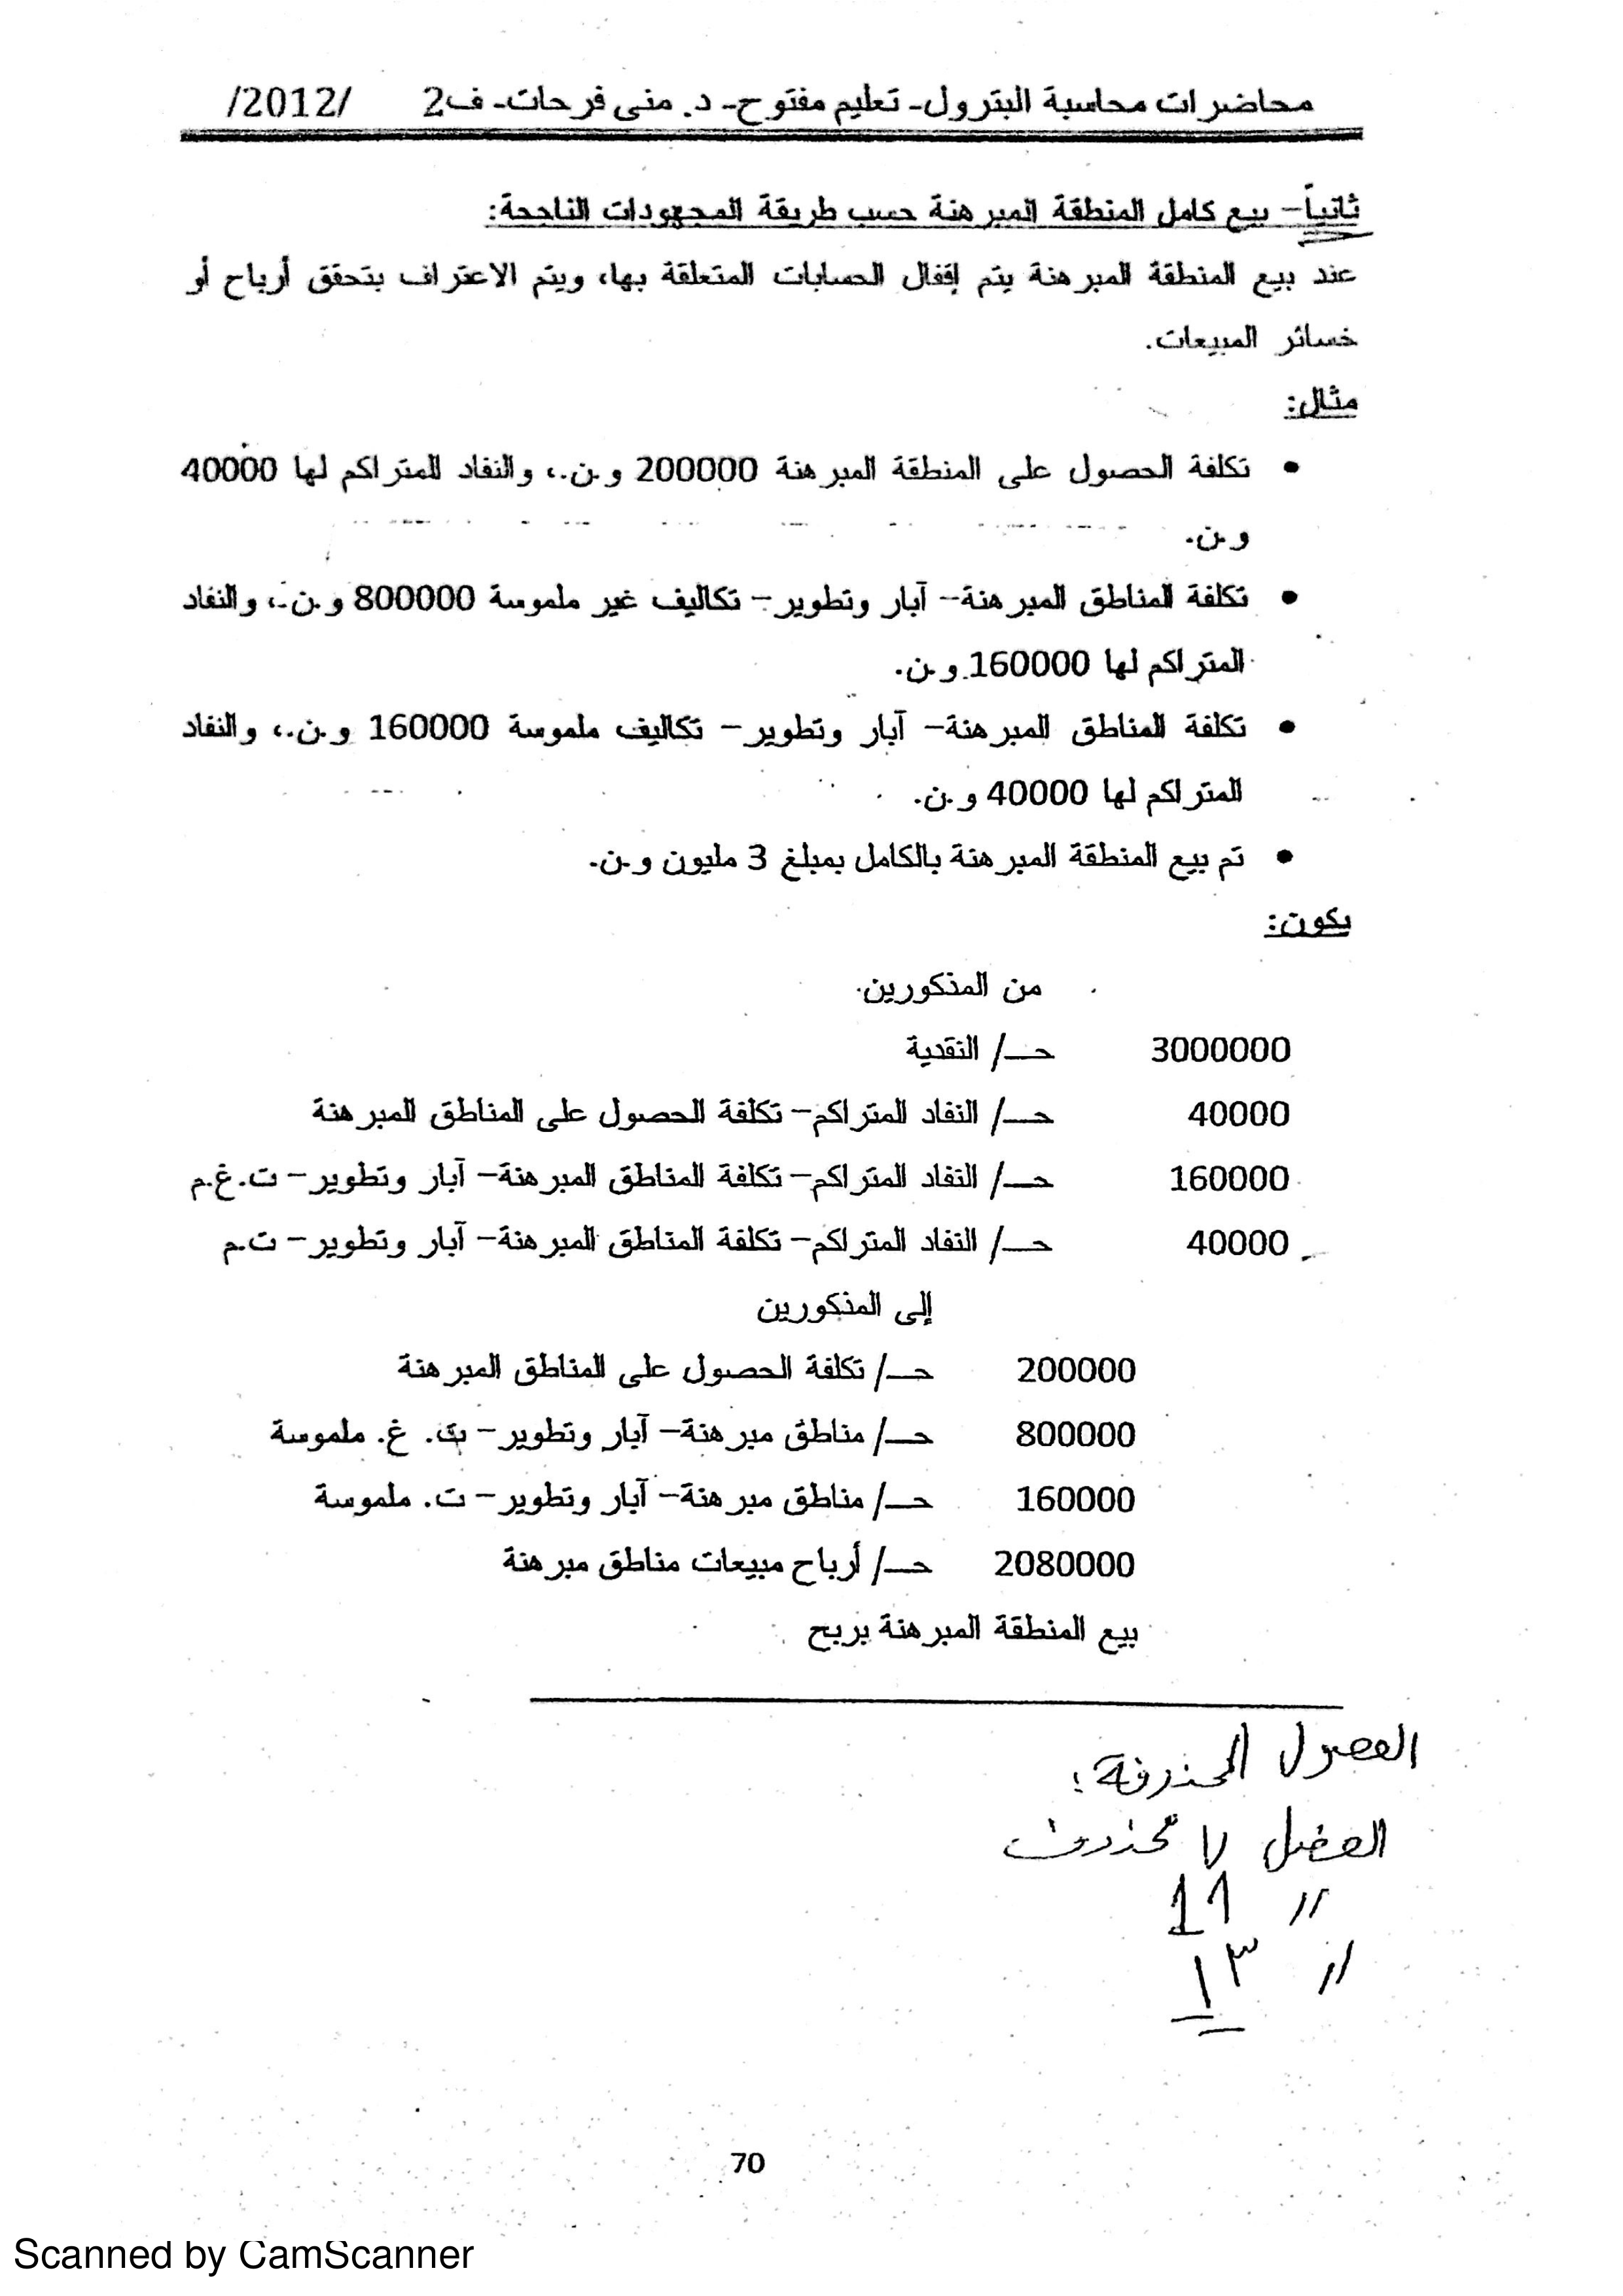 محاضرات محاسبة البترول- تعليم مفتوح- د. منى فرحات- ف2 /2012/
ثانياً- بيع كامل المنطقة المبرهنة حسب طريقة المجهودات الناجحة:
عند بيع المنطقة المبرهنة يتم إقفال الحسابات المتعلقة بها، ويتم الاعتراف بتحقق أرباح أو
خسائر المبيعات.
مثال:
• تكلفة الحصول على المنطقة المبرهنة 200000 و.ن.، والنفاد المتراكم لها 40000
و.ن.
• تكلفة المناطق المبرهنة- آبار وتطوير- تكاليف غير ملموسة 800000 و.ن.، والنفاد
المتراكم لها 160000 و.ن.
• تكلفة المناطق المبرهنة- آبار وتطوير- تكاليف ملموسة 160000 و.ن.، والنفاد
المتراكم لها 40000 و.ن.
• تم بيع المنطقة المبرهنة بالكامل بمبلغ 3 مليون و.ن.
يكون:
من المذكورين
3000000 حـ/ النقدية
40000 حـ/ النفاد المتراكم- تكلفة الحصول على المناطق المبرهنة
160000 حـ/ النفاد المتراكم- تكلفة المناطق المبرهنة- آبار وتطوير- ت.غ.م
40000 حـ/ النفاد المتراكم- تكلفة المناطق المبرهنة- آبار وتطوير- ت.م
إلى المذكورين
200000 حـ/ تكلفة الحصول على المناطق المبرهنة
800000 حـ/ مناطق مبرهنة- آبار وتطوير- ت. غ. ملموسة
160000 حـ/ مناطق مبرهنة- آبار وتطوير- ت. ملموسة
2080000 حـ/ أرباح مبيعات مناطق مبرهنة
بيع المنطقة المبرهنة بربح
الفصول المحذوفة:
الفصل ٧ محذوف
〃 11
〃 ١٣
70
Scanned by CamScanner